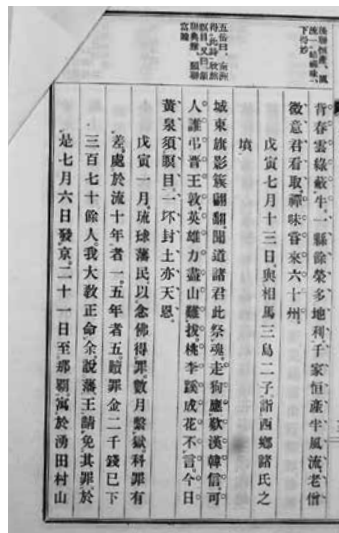 後聯恒產、風
流一結禪味、
下得妙
五岳曰、南洲
得此詩、欣然
瞑目、又曰、韻
脚典雅、頸聯
富贍
青春雲綠蔽牛、一縣餘榮多地利、千家恒產半風流、老僧
微意君看取、禪味嘗來六十州、
戊寅七月十三日、與相馬三島二子、詣西鄉諸氏之
墳
城東旗影簇翩翻、聞道諸君此祭魂、走狗應歎漢韓信、可
人誰弔晉王敦、英雄力盡山難拔、桃李蹊成花不言、今日
黃泉須瞑目、一坏封土亦天恩、
戊寅一月、琉球藩民以念佛得罪、數月繫獄、科罪有
差、處於流十年者一、五年者五、贖罪金二千錢已下
三百七十餘人、我大教正命余說藩王、請免其罪、於
是七月六日發京、二十一日至那覇、寓於湧田村山